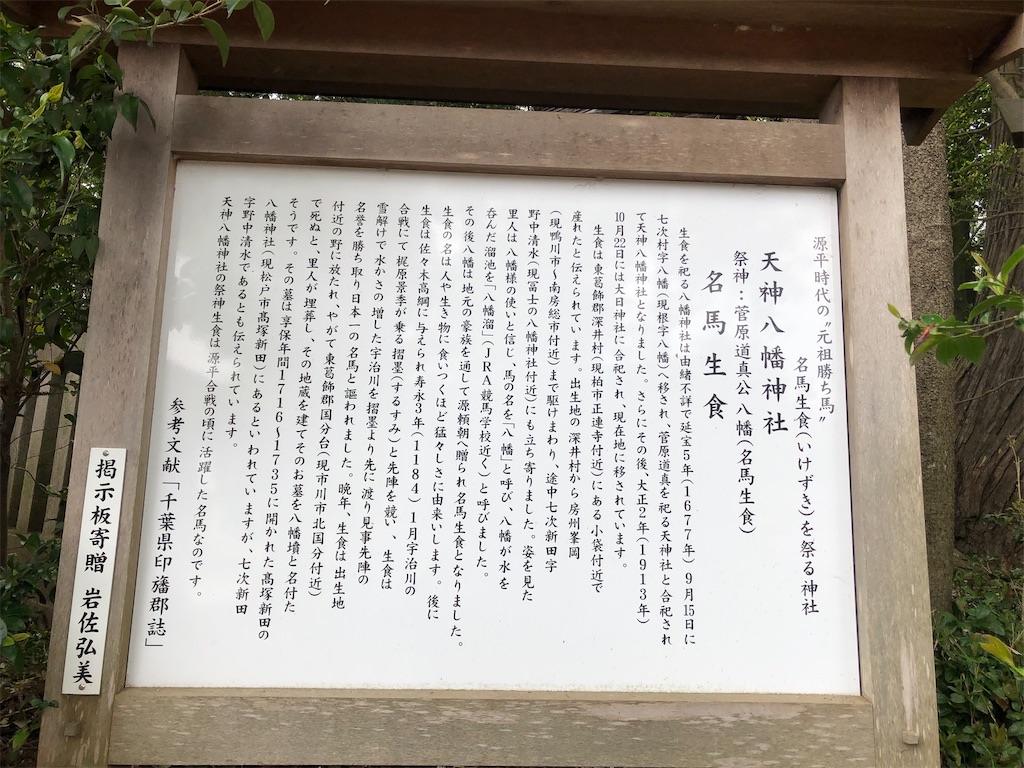 源平時代の〝元祖勝ち馬〟
名馬生食(いけずき)を祭る神社
天神八幡神社
祭神：菅原道真公 八幡(名馬生食)
名馬生食
生食を祀る八幡神社は由緒不詳で延宝5年(1677年)9月15日に
七次村字八幡(現根字八幡)へ移され、菅原道真を祀る天神社と合祀され
て天神八幡神社となりました。さらにその後、大正2年(1913年)
10月22日には大日神社に合祀され、現在地に移されています。
生食は東葛飾郡深井村(現柏市正連寺付近)にある小袋付近で
産れたと伝えられています。出生地の深井村から房州峯岡
(現鴨川市～南房総市付近)まで駆けまわり、途中七次新田字
野中清水(現冨士の八幡神社付近)にも立ち寄りました。姿を見た
里人は八幡様の使いと信じ、馬の名を「八幡」と呼び、八幡が水を
呑んだ溜池を「八幡溜」(JRA競馬学校近く)と呼びました。
その後八幡は地元の豪族を通して源頼朝へ贈られ名馬生食となりました。
生食の名は人や生き物に食いつくほど猛々しさに由来いします。後に
生食は佐々木高綱に与えられ寿永3年(1184)1月宇治川の
合戦にて梶原景季が乗る摺墨(するすみ)と先陣を競い、生食は
雪解けで水かさの増した宇治川を摺墨より先に渡り見事先陣の
名誉を勝ち取り日本一の名馬と謳われました。晩年、生食は出生地
付近の野に放たれ、やがて東葛飾郡国分台(現市川市北国分付近)
で死ぬと、里人が埋葬し、その地蔵を建てそのお墓を八幡墳と名付た
そうです。その墓は享保年間1716～1735に開かれた高塚新田の
八幡神社(現松戸市高塚新田)にあるといわれていますが、七次新田
字野中清水であるとも伝えられています。
天神八幡神社の祭神生食は源平合戦の頃に活躍した名馬なのです。
参考文献「千葉県印旛郡誌」
掲示板寄贈 岩佐弘美